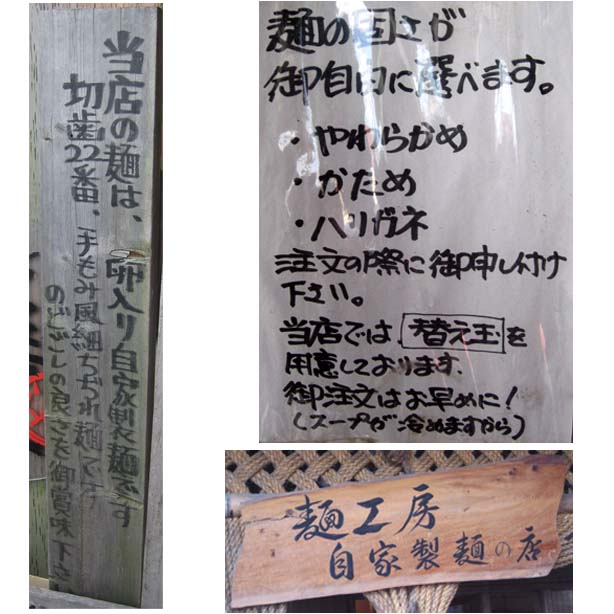 当店の麺は、卵入り自家製麺です
切歯22番、手もみ風細ちぢれ麺です
のどごしの良さを御賞味下さ
麺の固さが
御自由に選べます。
・やわらかめ
・かため
・ハリガネ
注文の際に御申し付け
下さい。
当店では、替え玉を
用意しております。
御注文はお早めに!
(スープが冷めますから)
麺工房
自家製麺の店